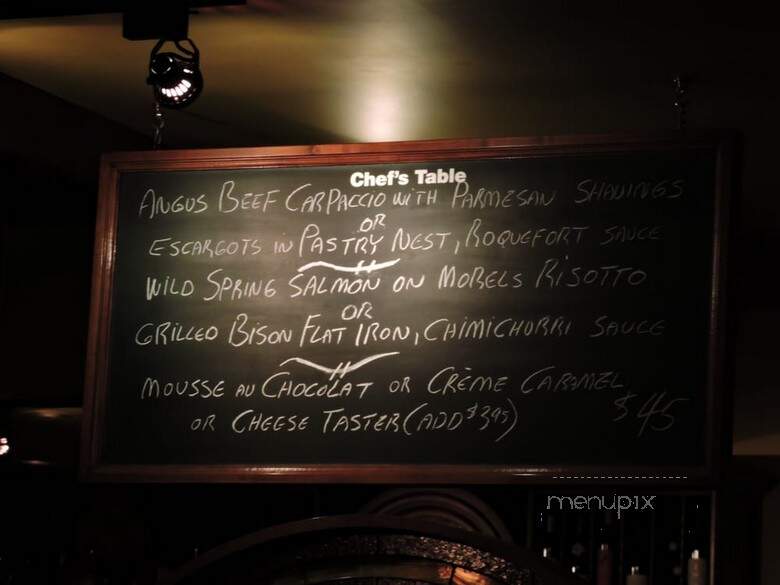 Chef's Table
ANGUS BEEF CARPACCIO WITH PARMESAN SHAVINGS
OR
ESCARGOTS IN PASTRY NEST, ROQUEFORT SAUCE
WILD SPRING SALMON ON MORELS RISOTTO
OR
GRILLED BISON FLAT IRON, CHIMICHURRI SAUCE
MOUSSE AU CHOCOLAT OR CRÈME CARAMEL
OR CHEESE TASTER (ADD $3.95)
$45
menupix